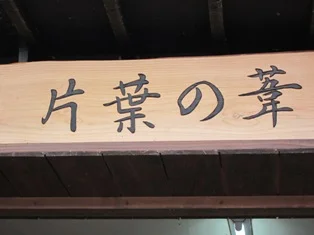 片葉の葦